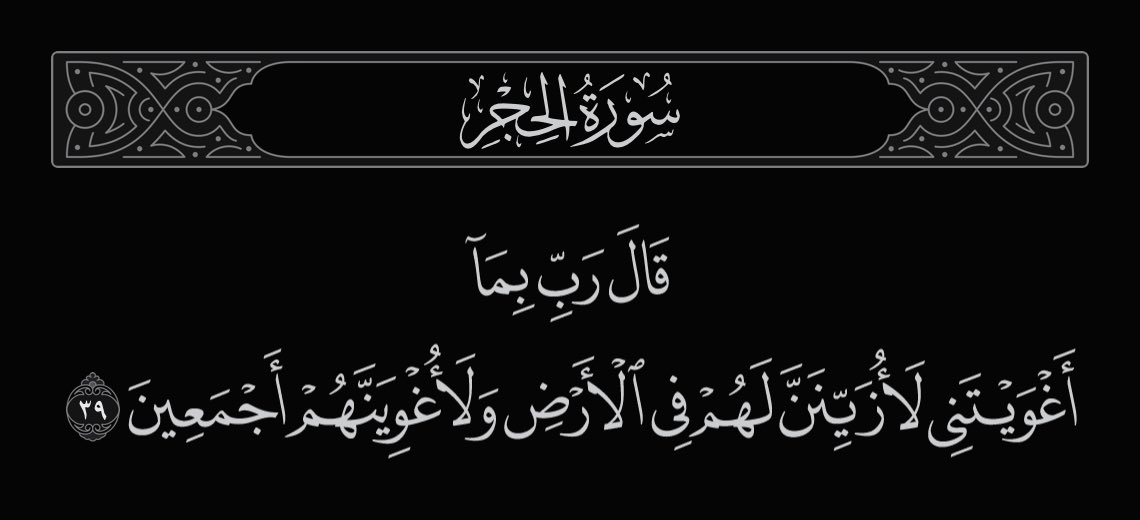 سُورَةُ الحِجْرِ
قَالَ رَبِّ بِمَآ
أَغْوَيْتَنِى لَأُزَيِّنَنَّ لَهُمْ فِى ٱلْأَرْضِ وَلَأُغْوِيَنَّهُمْ أَجْمَعِينَ ٣٩